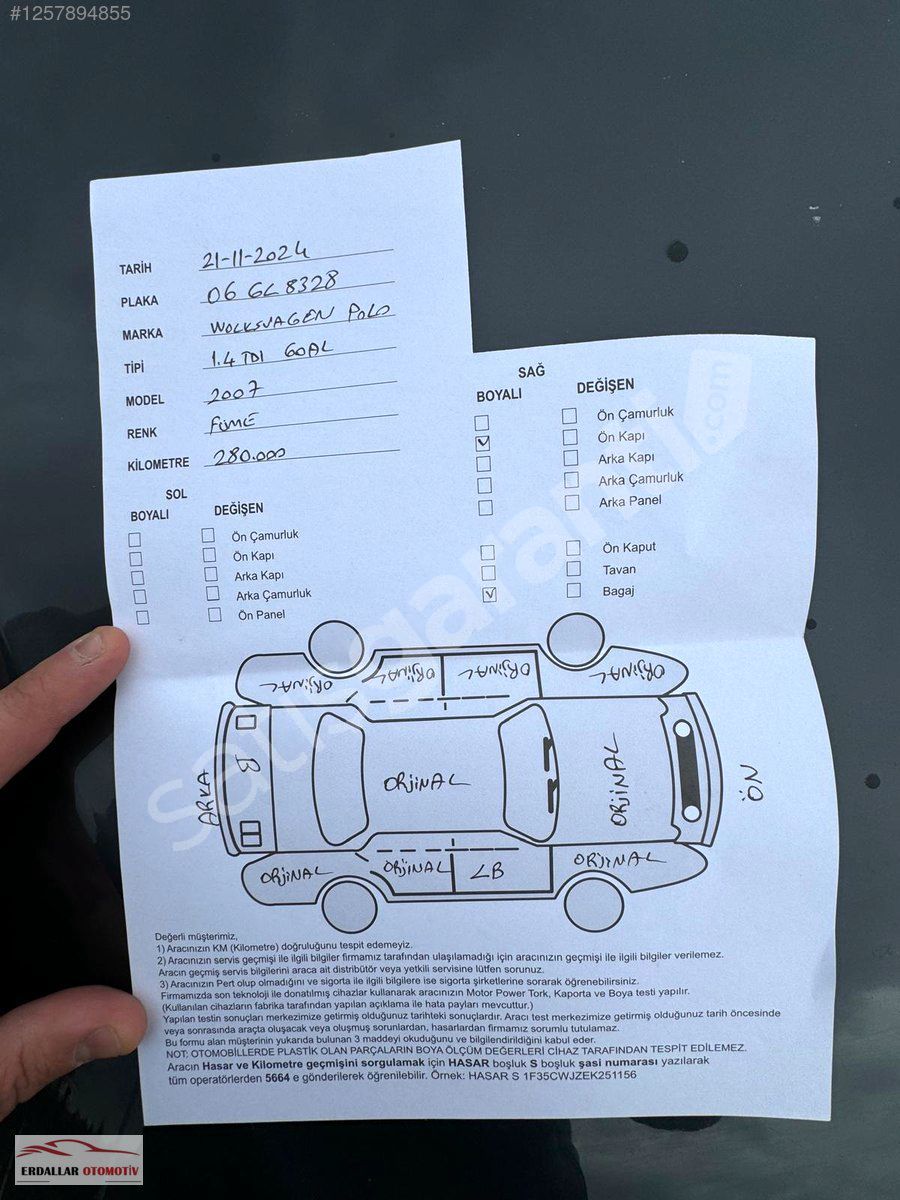 #1257894855
TARİH 21-11-2024
PLAKA 06 GL 8328
MARKA WOLKSVAGEN POLO
TİPİ 1.4 TDI GOAL
MODEL 2007
RENK FÜME
KİLOMETRE 280.000
SOL
BOYALI DEĞİŞEN
Ön Çamurluk
Ön Kapı
Arka Kapı
Arka Çamurluk
Ön Panel
SAĞ
BOYALI DEĞİŞEN
Ön Çamurluk
Ön Kapı
Arka Kapı
Arka Çamurluk
Arka Panel
Ön Kaput
Tavan
Bagaj
satisgaranti.com
ORJİNAL ORJİNAL ORJİNAL ORJİNAL
ARKA B ORJİNAL ORJİNAL ÖN
ORJİNAL ORJİNAL LB ORJİNAL
Değerli müşterimiz,
1) Aracınızın KM (Kilometre) doğruluğunu tespit edemeyiz.
2) Aracınızın servis geçmişi ile ilgili bilgiler firmamız tarafından ulaşılamadığı için aracınızın geçmişi ile ilgili bilgiler verilemez.
Aracın geçmiş servis bilgilerini araca ait distribütör veya yetkili servisine lütfen sorunuz.
3) Aracınızın Pert olup olmadığını ve sigorta ile ilgili bilgilere ise sigorta şirketlerine sorarak öğrenebilirsiniz.
Firmamızda son teknoloji ile donatılmış cihazlar kullanarak aracınızın Motor Power Tork, Kaporta ve Boya testi yapılır.
(Kullanılan cihazların fabrika tarafından yapılan açıklama ile hata payları mevcuttur.)
Yapılan testin sonuçları merkezimize getirmiş olduğunuz tarihteki sonuçlardır. Aracı test merkezimize getirmiş olduğunuz tarih öncesinde
veya sonrasında araçta oluşacak veya oluşmuş sorunlardan, hasarlardan firmamız sorumlu tutulamaz.
Bu formu alan müşterinin yukarıda bulunan 3 maddeyi okuduğunu ve bilgilendirildiğini kabul eder.
NOT: OTOMOBİLLERDE PLASTİK OLAN PARÇALARIN BOYA ÖLÇÜM DEĞERLERİ CİHAZ TARAFINDAN TESPİT EDİLEMEZ.
Aracın Hasar ve Kilometre geçmişini sorgulamak için HASAR boşluk S boşluk şasi numarası yazılarak
tüm operatörlerden 5664 e gönderilerek öğrenilebilir. Örnek: HASAR S 1F35CWJZEK251156
ERDALLAR OTOMOTİV